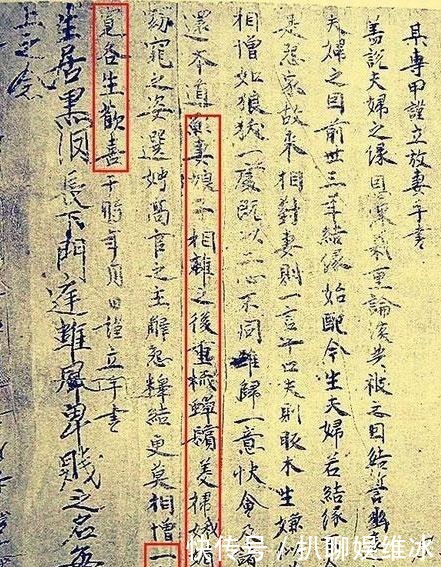 某專甲謹立放妻手書
蓋說夫婦之緣恩深義重論談共被之因結誓幽
夫婦之因前世三年結緣始配今生夫婦若結緣
是怨家故來相對妻則一言口夫則販木生嫌
相憎如狼犾一處既以二心不同難歸一意快會及諸
還本道 妻娘子相離之後重梳蟬鬢美掃娥眉
窈窕之姿選娉高官之主解怨釋結更莫相憎一
寬各生歡喜于時年月日謹立手書
上之
生居黑洄長下門庭雖風卑賤之名
快传号/扒聊娱维冰